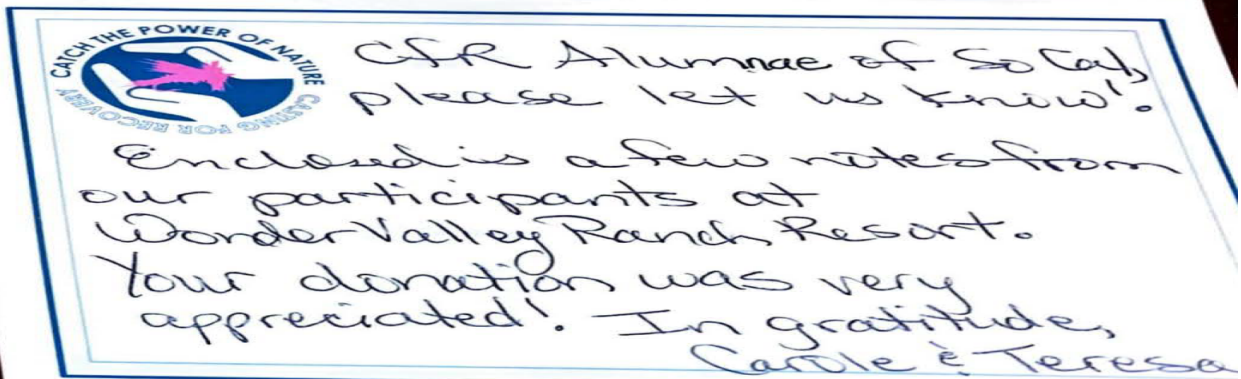 CATCH THE POWER OF NATURE
CASTING FOR RECOVERY
CfR Alumnae of So Cal,
please let us know!
Enclosed is a few notes from
our participants at
Wonder Valley Ranch Resort.
Your donation was very
appreciated! In gratitude,
Carole & Teresa